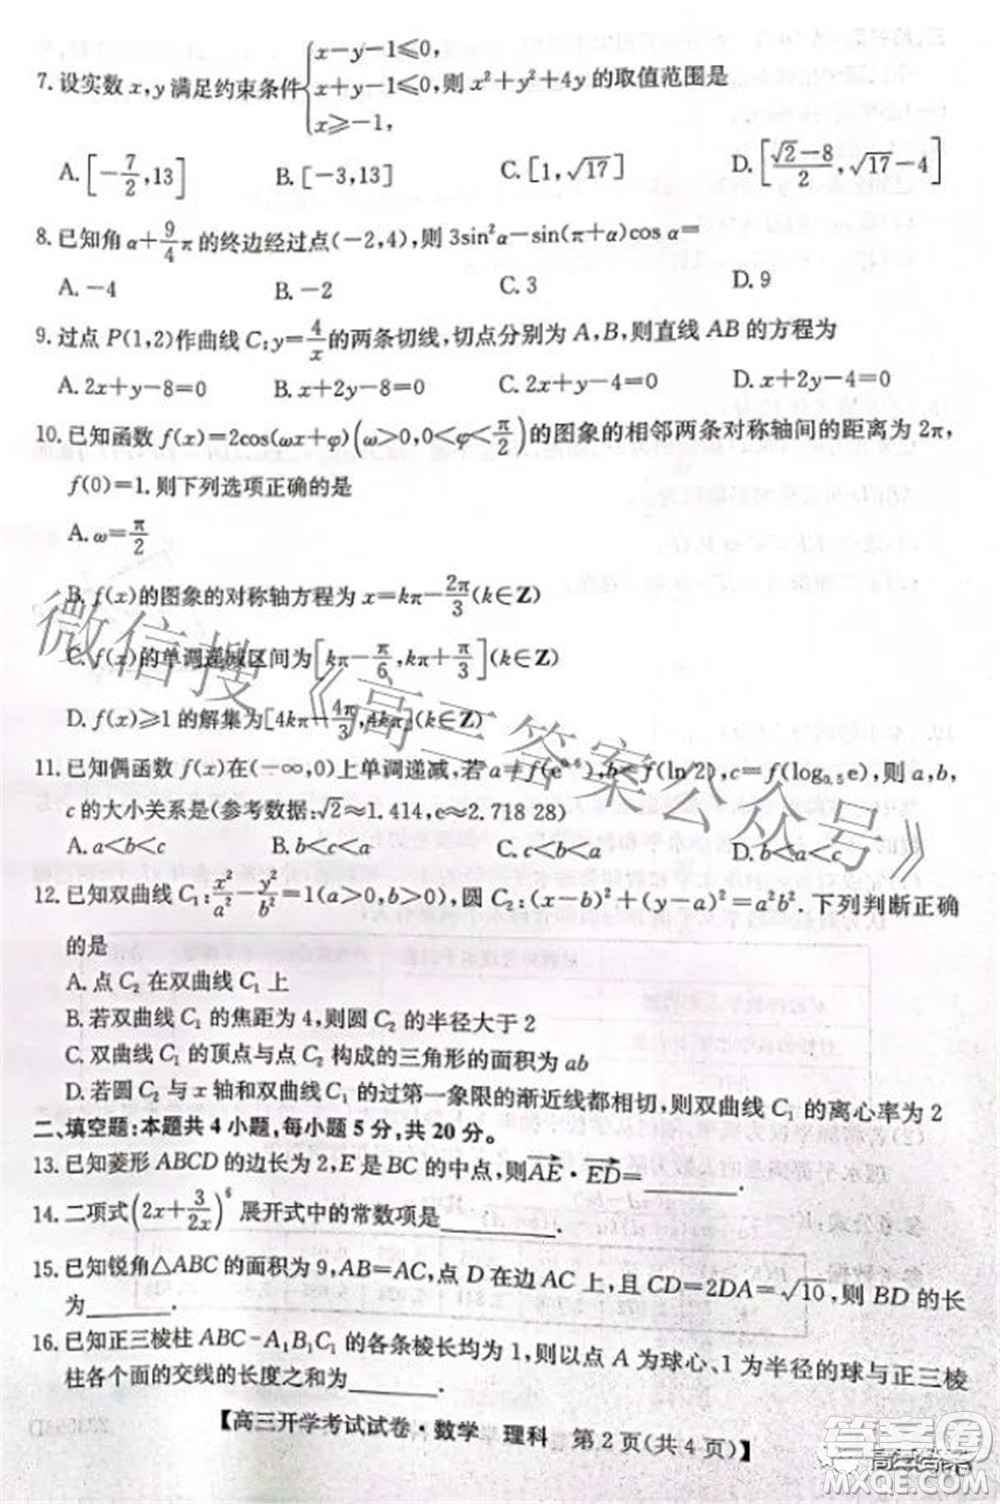 7.设实数 x,y 满足约束条件{x-y-1≤0, x+y-1≤0, x≥-1, 则 x²+y²+4y 的取值范围是
A.[-7/2,13] B.[-3,13] C.[1,√17] D.[(√2-8)/2,√17-4]
8.已知角 α+9/4π 的终边经过点(-2,4),则 3sin²α-sin(π+α)cos α=
A.-4 B.-2 C.3 D.9
9.过点 P(1,2)作曲线 C:y=4/x 的两条切线,切点分别为 A,B,则直线 AB 的方程为
A.2x+y-8=0 B.x+2y-8=0 C.2x+y-4=0 D.x+2y-4=0
10.已知函数 f(x)=2cos(ωx+φ)(ω>0,0<φ<π/2)的图象的相邻两条对称轴间的距离为 2π,
f(0)=1.则下列选项正确的是
A.ω=π/2
B.f(x)的图象的对称轴方程为 x=kπ-2π/3(k∈Z)
C.f(x)的单调递减区间为[kπ-π/6,kπ+π/3](k∈Z)
D.f(x)≥1 的解集为[4kπ-4π/3,4kπ](k∈Z)
11.已知偶函数 f(x)在(-∞,0)上单调递减,若 a=f( ),b=f(ln 2),c=f(log₀.₅e),则 a,b,
c 的大小关系是(参考数据:√2≈1.414,e≈2.718 28)
A.a<b<c B.b<c<a C.c<b<a D.b<a<c
12.已知双曲线 C₁:x²/a²-y²/b²=1(a>0,b>0),圆 C₂:(x-b)²+(y-a)²=a²b².下列判断正确
的是
A.点 C₂ 在双曲线 C₁ 上
B.若双曲线 C₁ 的焦距为 4,则圆 C₂ 的半径大于 2
C.双曲线 C₁ 的顶点与点 C₂ 构成的三角形的面积为 ab
D.若圆 C₂ 与 x 轴和双曲线 C₁ 的过第一象限的渐近线都相切,则双曲线 C₁ 的离心率为 2
二、填空题:本题共 4 小题,每小题 5 分,共 20 分。
13.已知菱形 ABCD 的边长为 2,E 是 BC 的中点,则AE→·ED→=________.
14.二项式(2x+3/(2x))⁶ 展开式中的常数项是________.
15.已知锐角△ABC 的面积为 9,AB=AC,点 D 在边 AC 上,且 CD=2DA=√10,则 BD 的长
为________.
16.已知正三棱柱 ABC-A₁B₁C₁ 的各条棱长均为 1,则以点 A 为球心、1 为半径的球与正三棱
柱各个面的交线的长度之和为________.
【高三开学考试试卷·数学 理科 第 2 页(共 4 页)】
微信搜《高三答案公众号》
答案圈
MXQE.COM